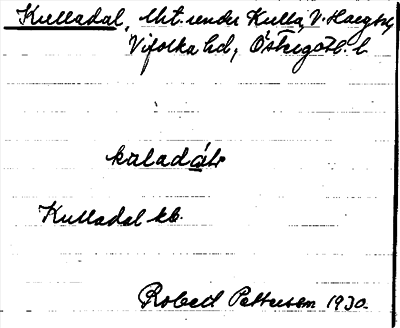 Kulladal, lht. under Kulla, V. Harg sn,
Vifolka hd, Östergötl. l.
kuladál
Kulladal kb.
Robert Pettersson 1930.